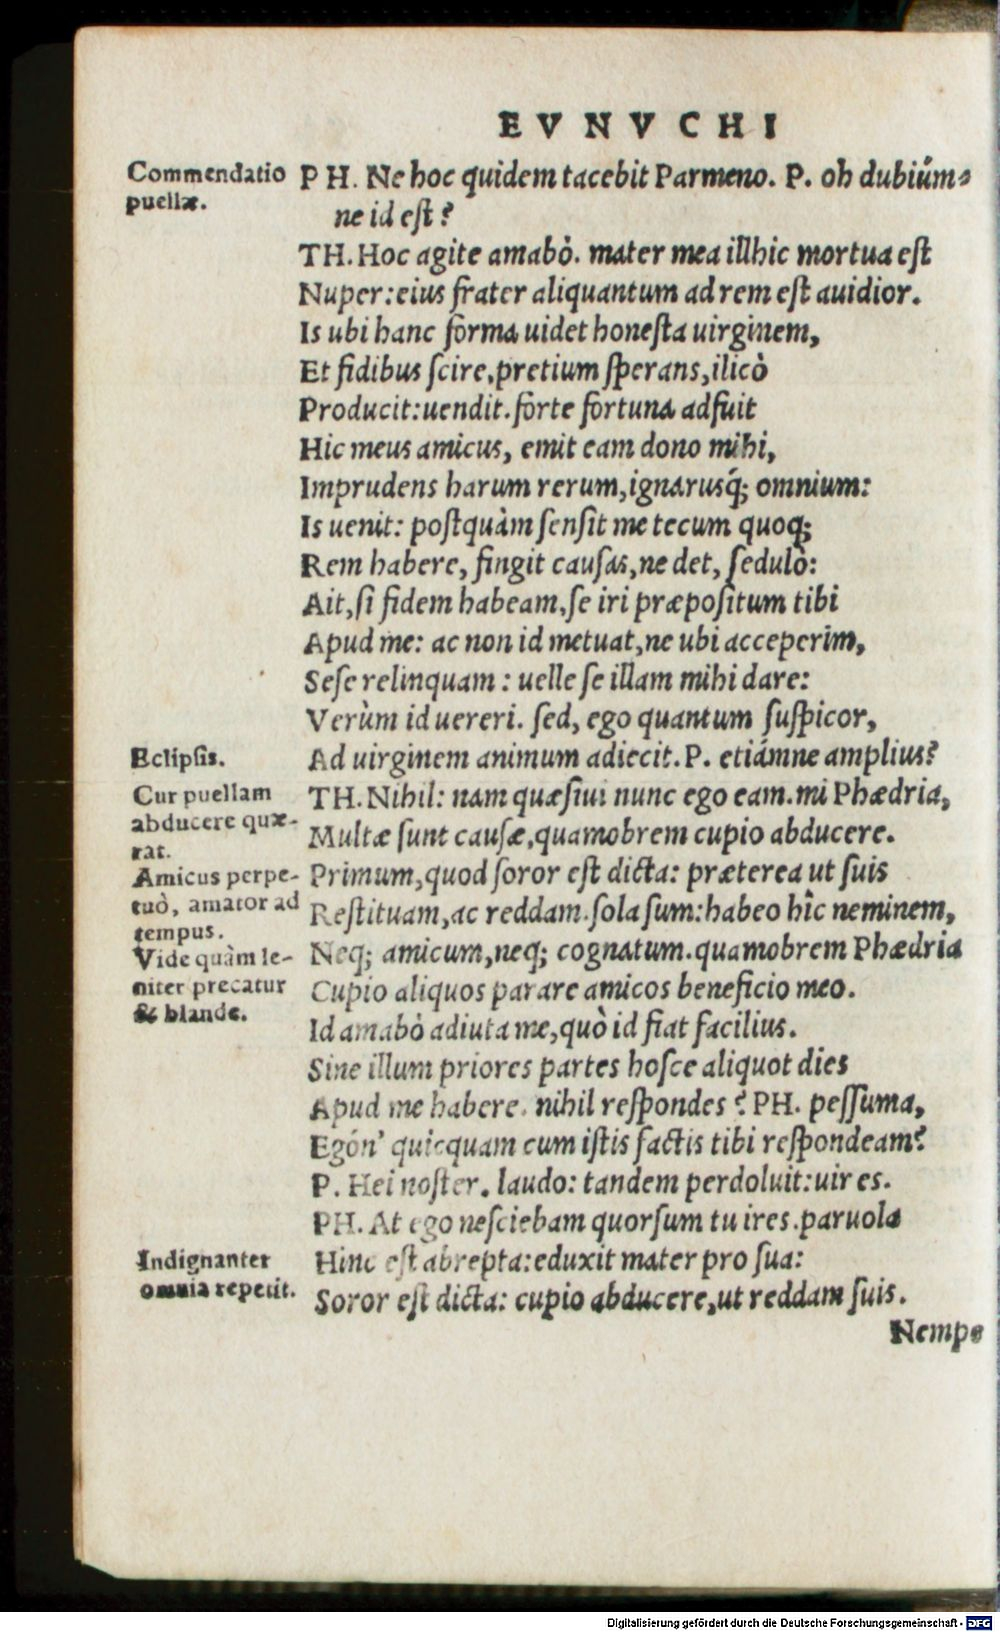 EVNVCHI
Commendatio
puellæ.
PH. Ne hoc quidem tacebit Parmeno. P. oh dubiúm-
ne id est?
TH. Hoc agite amabò. mater mea illhic mortua est
Nuper: eius frater aliquantum ad rem est auidior.
Is ubi hanc forma uidet honesta uirginem,
Et fidibus scire, pretium sperans, ilicò
Producit: uendit. forte fortuna adfuit
Hic meus amicus, emit eam dono mihi,
Imprudens harum rerum, ignarusq́; omnium:
Is uenit: postquàm sensit me tecum quoq;
Rem habere, fingit causas, ne det, sedulò:
Ait, si fidem habeam, se iri præpositum tibi
Apud me: ac non id metuat, ne ubi acceperim,
Sese relinquam: uelle se illam mihi dare:
Verùm id uereri. sed, ego quantum suspicor,
Eclipsis.
Ad uirginem animum adiecit. P. etiámne amplius?
Cur puellam
abducere quæ-
rat.
TH. Nihil: nam quæsiui nunc ego eam. mi Phædria,
Multæ sunt causæ, quamobrem cupio abducere.
Amicus perpe-
tuò, amator ad
tempus.
Primum, quod soror est dicta: præterea ut suis
Restituam, ac reddam. sola sum: habeo hîc neminem,
Vide quàm le-
niter precatur
& blande.
Neq; amicum, neq; cognatum. quamobrem Phædria
Cupio aliquos parare amicos beneficio meo.
Id amabò adiuta me, quò id fiat facilius.
Sine illum priores partes hosce aliquot dies
Apud me habere. nihil respondes? PH. pessuma,
Egón' quicquam cum istis factis tibi respondeam?
P. Hei noster. laudo: tandem perdoluit: uir es.
PH. At ego nesciebam quorsum tu ires. paruola
Indignanter
omnia repetit.
Hinc est abrepta: eduxit mater pro sua:
Soror est dicta: cupio abducere, ut reddam suis.
Nempe
Digitalisierung gefördert durch die Deutsche Forschungsgemeinschaft - DFG